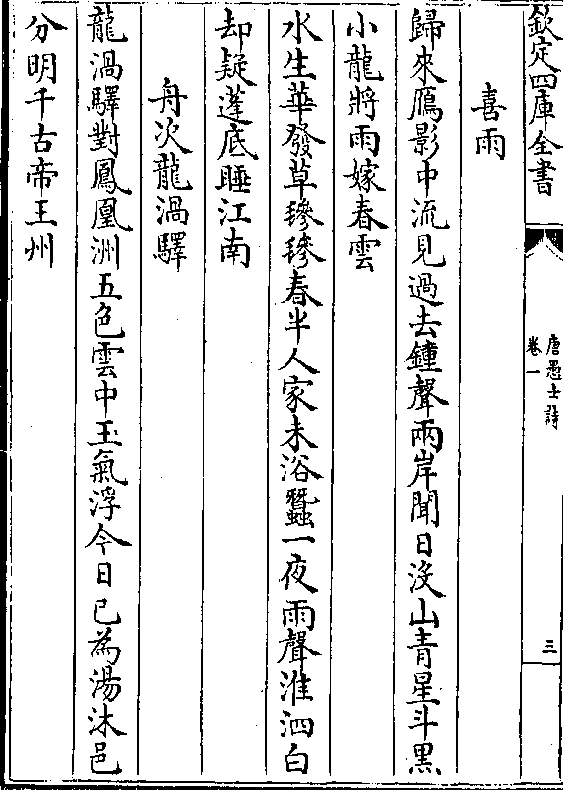 欽定四庫全書
唐愚士詩
卷一
三
喜雨
歸來鴈影中流見過去鐘聲兩岸聞日沒山青星斗黑
小龍將雨嫁春雲
水生華發草毿毿春半人家未浴蠶一夜雨聲淮泗白
却疑蓬底睡江南
舟次龍渦驛
龍渦驛對鳳凰洲五色雲中玉氣浮今日已為湯沐邑
分明千古帝王州